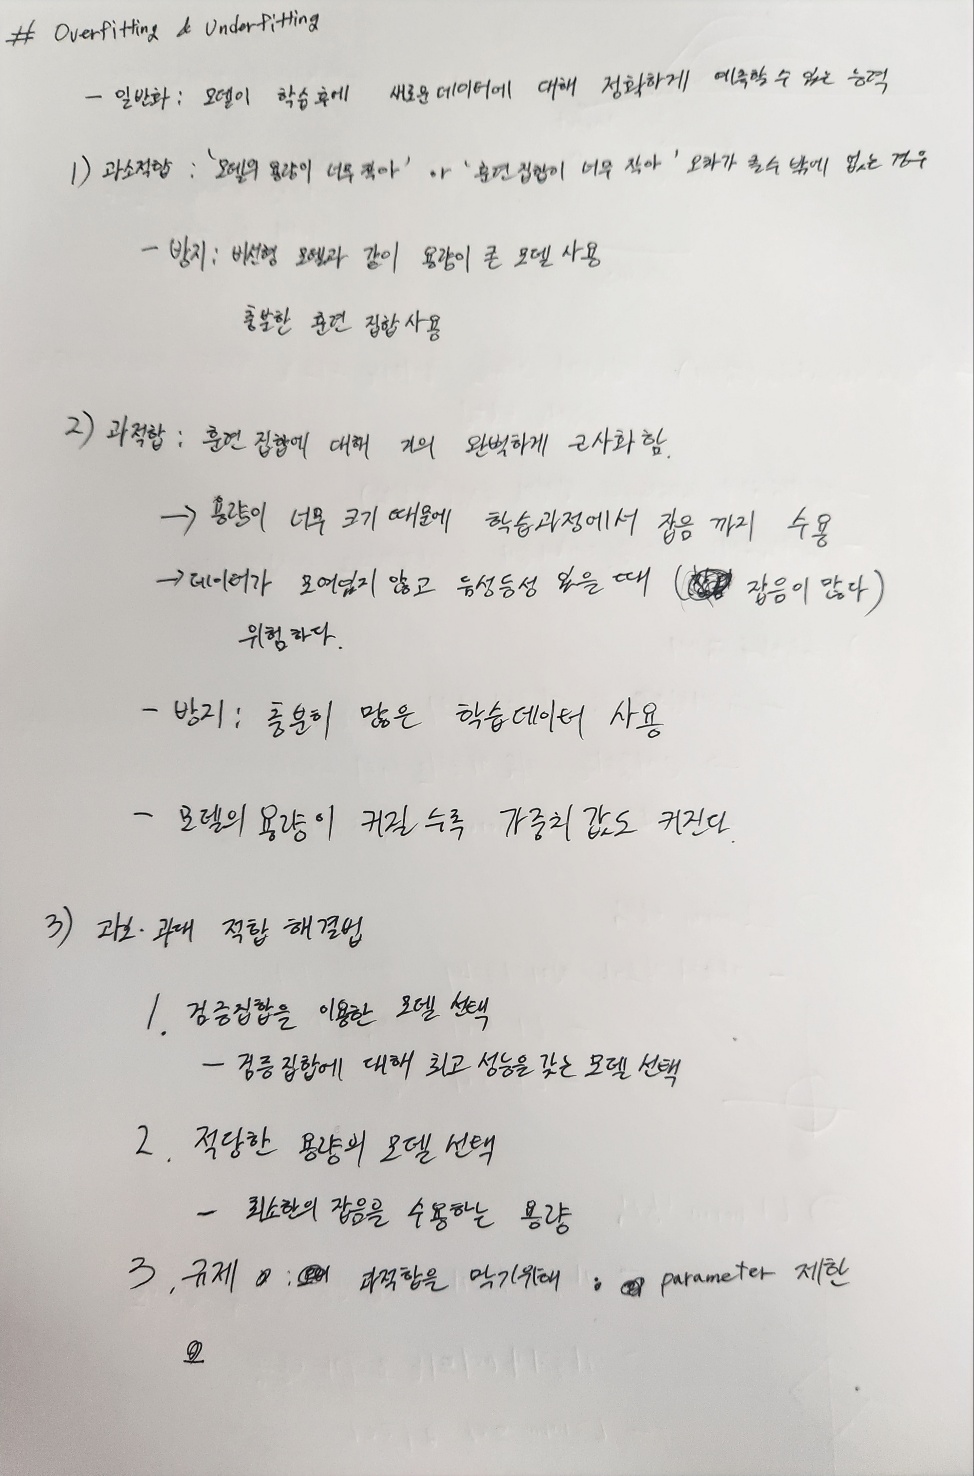 # Overfitting & Underfitting
- 일반화 : 모델이 학습 후에 새로운 데이터에 대해 정확하게 예측할 수 있는 능력
1) 과소적합 : '모델의 용량이 너무 작아' or '훈련 집합이 너무 작아' 오차가 클 수 밖에 없는 경우
- 방지 : 비선형 모델과 같이 용량이 큰 모델 사용
충분한 훈련 집합 사용
2) 과적합 : 훈련 집합에 대해 거의 완벽하게 근사화 함.
→ 용량이 너무 크기 때문에 학습과정에서 잡음 까지 수용
→ 데이터가 모여있지 않고 듬성듬성 있을 때 ( 잡음이 많다)
위험하다.
- 방지 : 충분히 많은 학습데이터 사용
- 모델의 용량이 커질 수록 가중치 값도 커진다.
3) 과소·과대 적합 해결법
1. 검증집합을 이용한 모델 선택
- 검증 집합에 대해 최고 성능을 갖는 모델 선택
2. 적당한 용량의 모델 선택
- 최소한의 잡음을 수용하는 용량
3. 규제 : 과적합을 막기위해 : parameter 제한